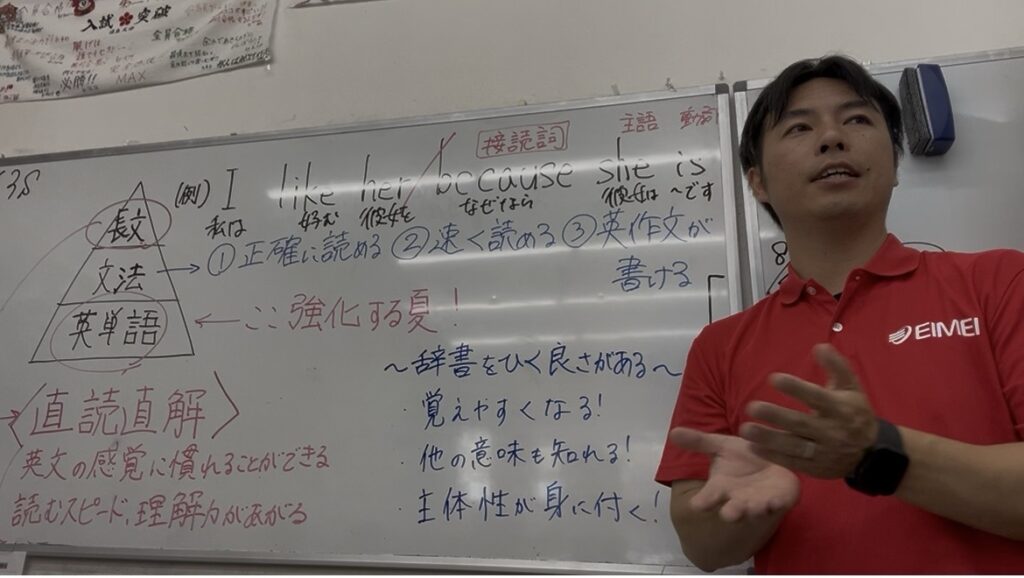 入試 突破
全員合格
必勝!!
MAX
接読詞
主語 動詞
(例) I like her because she is
私は 好む 彼女を なぜなら 彼女は ～です
長文
文法
英単語
→ ①正確に読める ②速く読める ③英作文が
書ける
← ここ強化する夏!
〈直読直解〉
英文の感覚に慣れることができる
読むスピード、理解力があがる
～辞書をひく良さがある～
・覚えやすくなる!
・他の意味も知れる!
・主体性が身に付く!
EIMEI